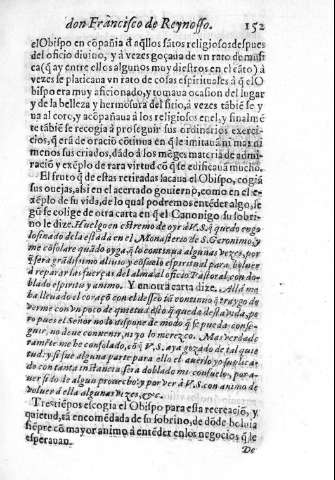 don Francisco de Reynosso. 152
el Obispo en cõpañia đ aq̃llos sãtos religiosos despues
del oficio diuino, y à vezes goçaua de vn rato de musi
ca (q̃ ay entre ellos algunos muy diestros en el cãto) à
vezes se platicaua vn rato de cosas espirituales à q̃ el O
bispo era muy aficionado, y tomaua ocasion del lugar
y de la belleza y hermosura del sitio, à vezes tãbiẽ se y
ua al coro, y acõpañaua à los religiosos en el, y finalmẽ
te tãbiẽ se recogia à proseguir sus ordinarios exerci-
cios, q̃ erã de oraciõ cõtinua en q̃ le imitauã
menos sus criados, dãdo à los mõges materia de admi-
raciõ y exẽplo de rara virtud cõ q̃ se edificauã mucho.
El fruto q̃ de estas retiradas sacaua el Obispo, cogiã
sus ouejas, assi en el acertado gouierno, como en el e-
xẽplo de su vida, de lo qual podremos entẽder algo, se
gũ se colige de otra carta en q̃ el Canonigo su sobri-
no le dize. Huelgo en estremo de oyr à V.S. q̃ quedo en go
losinado de la estada en el Monasterio de S. Geronimo, y
me cõsolare quãdo oyga, q̃ lo continua algunas vezes, por
q̃ sera grãdissimo aliuio y cõsuelo espiritual para boluer
à reparar las fuerças del alma al oficio Pastoral, con do-
blado espiritu y animo. Y en otra carta dize. Allà me
ha lleuado el coraçõ con el desseo tã continuo q̃ traygo de
verme con vn poco de quietud esso q̃ queda desta vida, pe
ro pues el Señor no lo dispone de modo q̃ se pueda conse-
guir, no deue conuenir, ni yo lo merezco. Mas verdade
ramẽte me he consolado, cõ q̃ V.S. aya gozado de tal quie
tud: y si fue alguna parte para ello el auerlo yo suplica-
do con tanta instancia, sera doblado mi consuelo, por a-
uer sido de algun prouecho: y por ver à V.S. con animo de
voluer à ella algunas vezes, &c.
Tres tiẽpos escogia el Obispo para esta recreaciõ, y
quietud, tã encomẽdada de su sobrino, de dõde boluia
siẽpre cõ mayor animo à entẽder en los negocios q̃ le
esperauan.
De